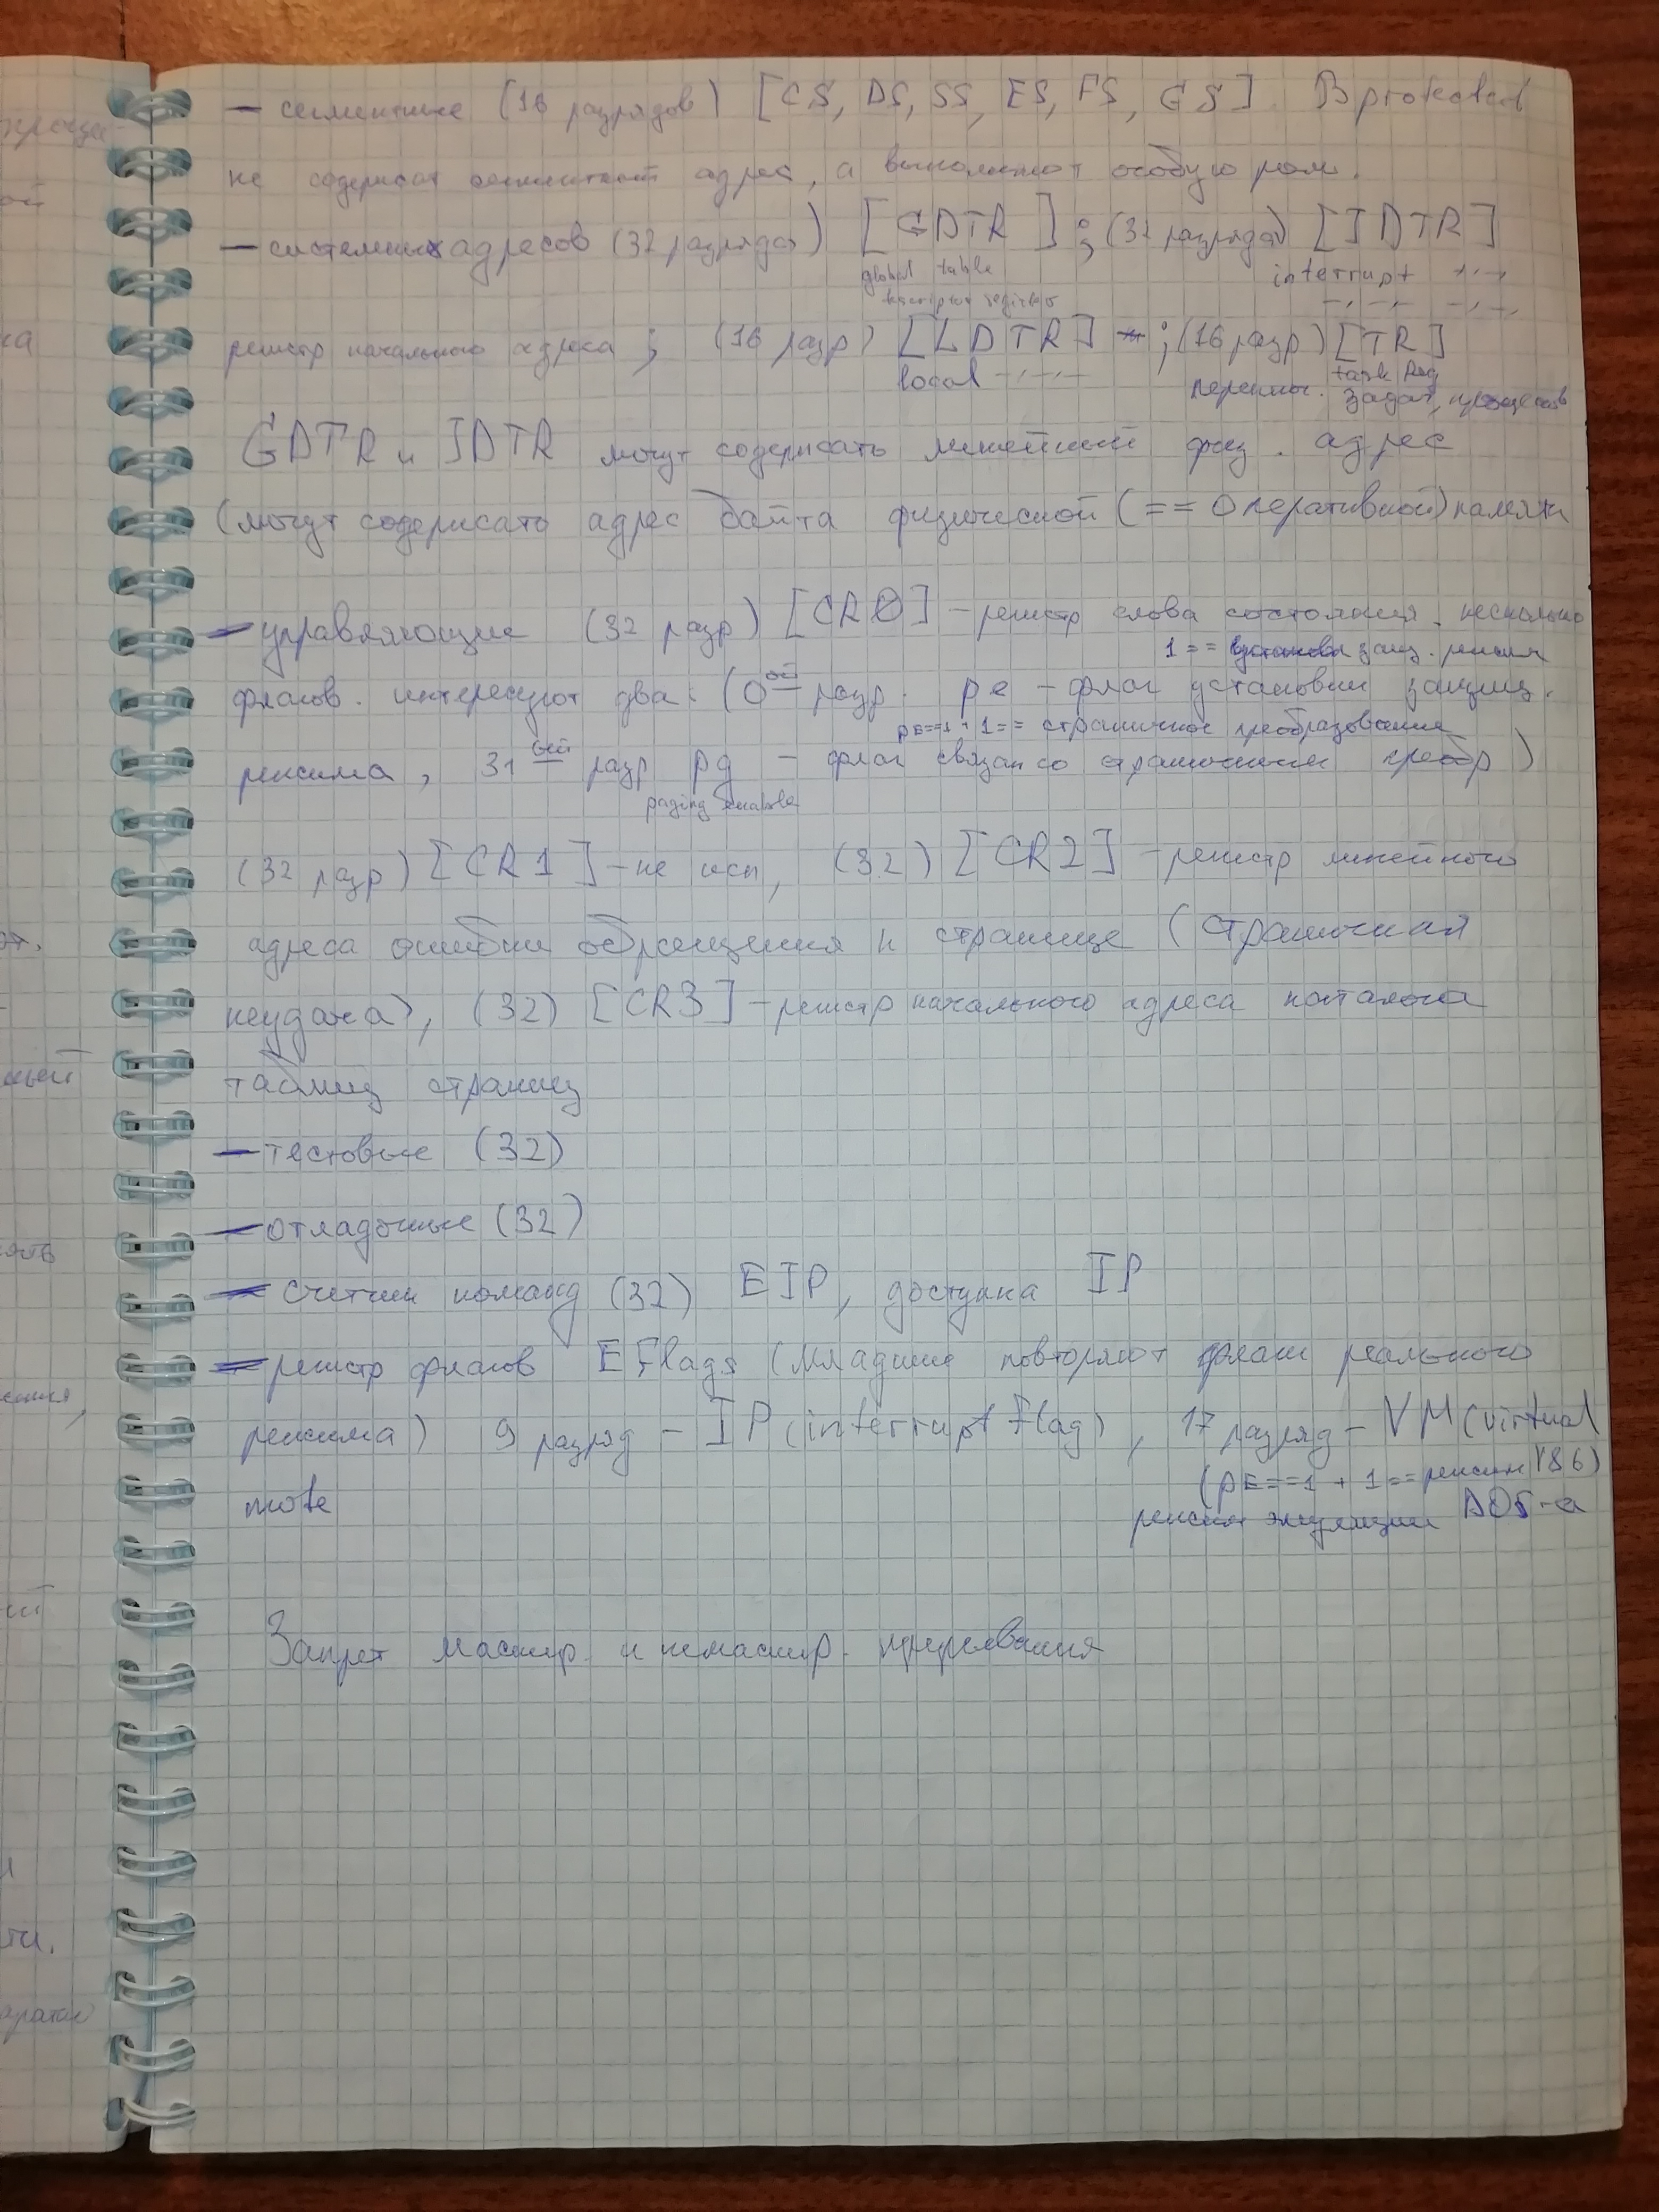 — сегментные (16 разрядов) [CS, DS, SS, ES, FS, GS]. В protected
не содержат сегментный адрес, а выполняют особую роль.
— системных адресов (32 разряда) [GDTR]; (32 разряда) [IDTR]
global table interrupt -,-,-
descriptor register -,-,- -,-,-
регистр начального адреса; (16 разр) [LDTR]; (16 разр) [TR]
local -,-,- task Reg
переключ. задач, процессов
GDTR и IDTR могут содержать линейный физ. адрес
(могут содержать адрес байта физической (== Оперативной) памяти
— управляющие (32 разр) [CR0] - регистр слова состояния. несколько
1 == установка защ. режима
флагов. интересуют два: (0ой разр. pe - флаг установки защищ.
pE==1 + 1 == страничное преобразование
режима, 31ый разр pg - флаг связан со страничным преобр)
paging enable
(32 разр) [CR1] - не исп, (32) [CR2] - регистр линейного
адреса ошибки обращения к странице (страничная
неудача), (32) [CR3] - регистр начального адреса каталога
таблиц страниц
— тестовые (32)
— отладочные (32)
— счетчик команд (32) EIP, доступна IP
— регистр флагов EFlags (младшие повторяют флаги реального
режима) 9 разряд - IP (interrupt Flag), 17 разряд - VM (virtual
(pE==1 + 1 == режим V86)
mode режим эмуляции DOS-а
Запрет маскир. и немаскир. прерывания